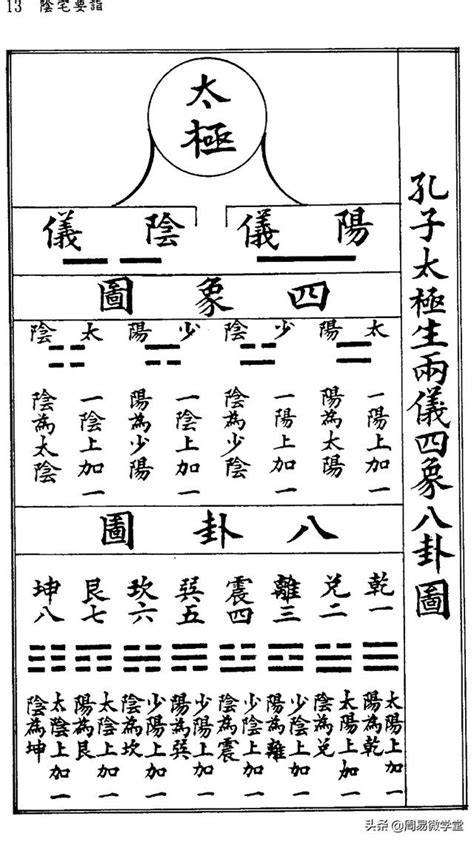 13 陰宅要詣
孔子太極生兩儀四象八卦圖
太極
陽儀
陰儀
四象圖
太陽
少陰
少陽
太陰
一陽上加一
陽為太陽
一陽上加一
陰為少陰
一陰上加一
陽為少陽
一陰上加一
陰為太陰
八卦圖
乾一
兌二
離三
震四
巽五
坎六
艮七
坤八
太陽上加一
陽為乾
太陽上加一
陰為兌
少陰上加一
陽為離
少陰上加一
陰為震
少陽上加一
陽為巽
少陽上加一
陰為坎
太陰上加一
陽為艮
太陰上加一
陰為坤
头条 @周易微学堂